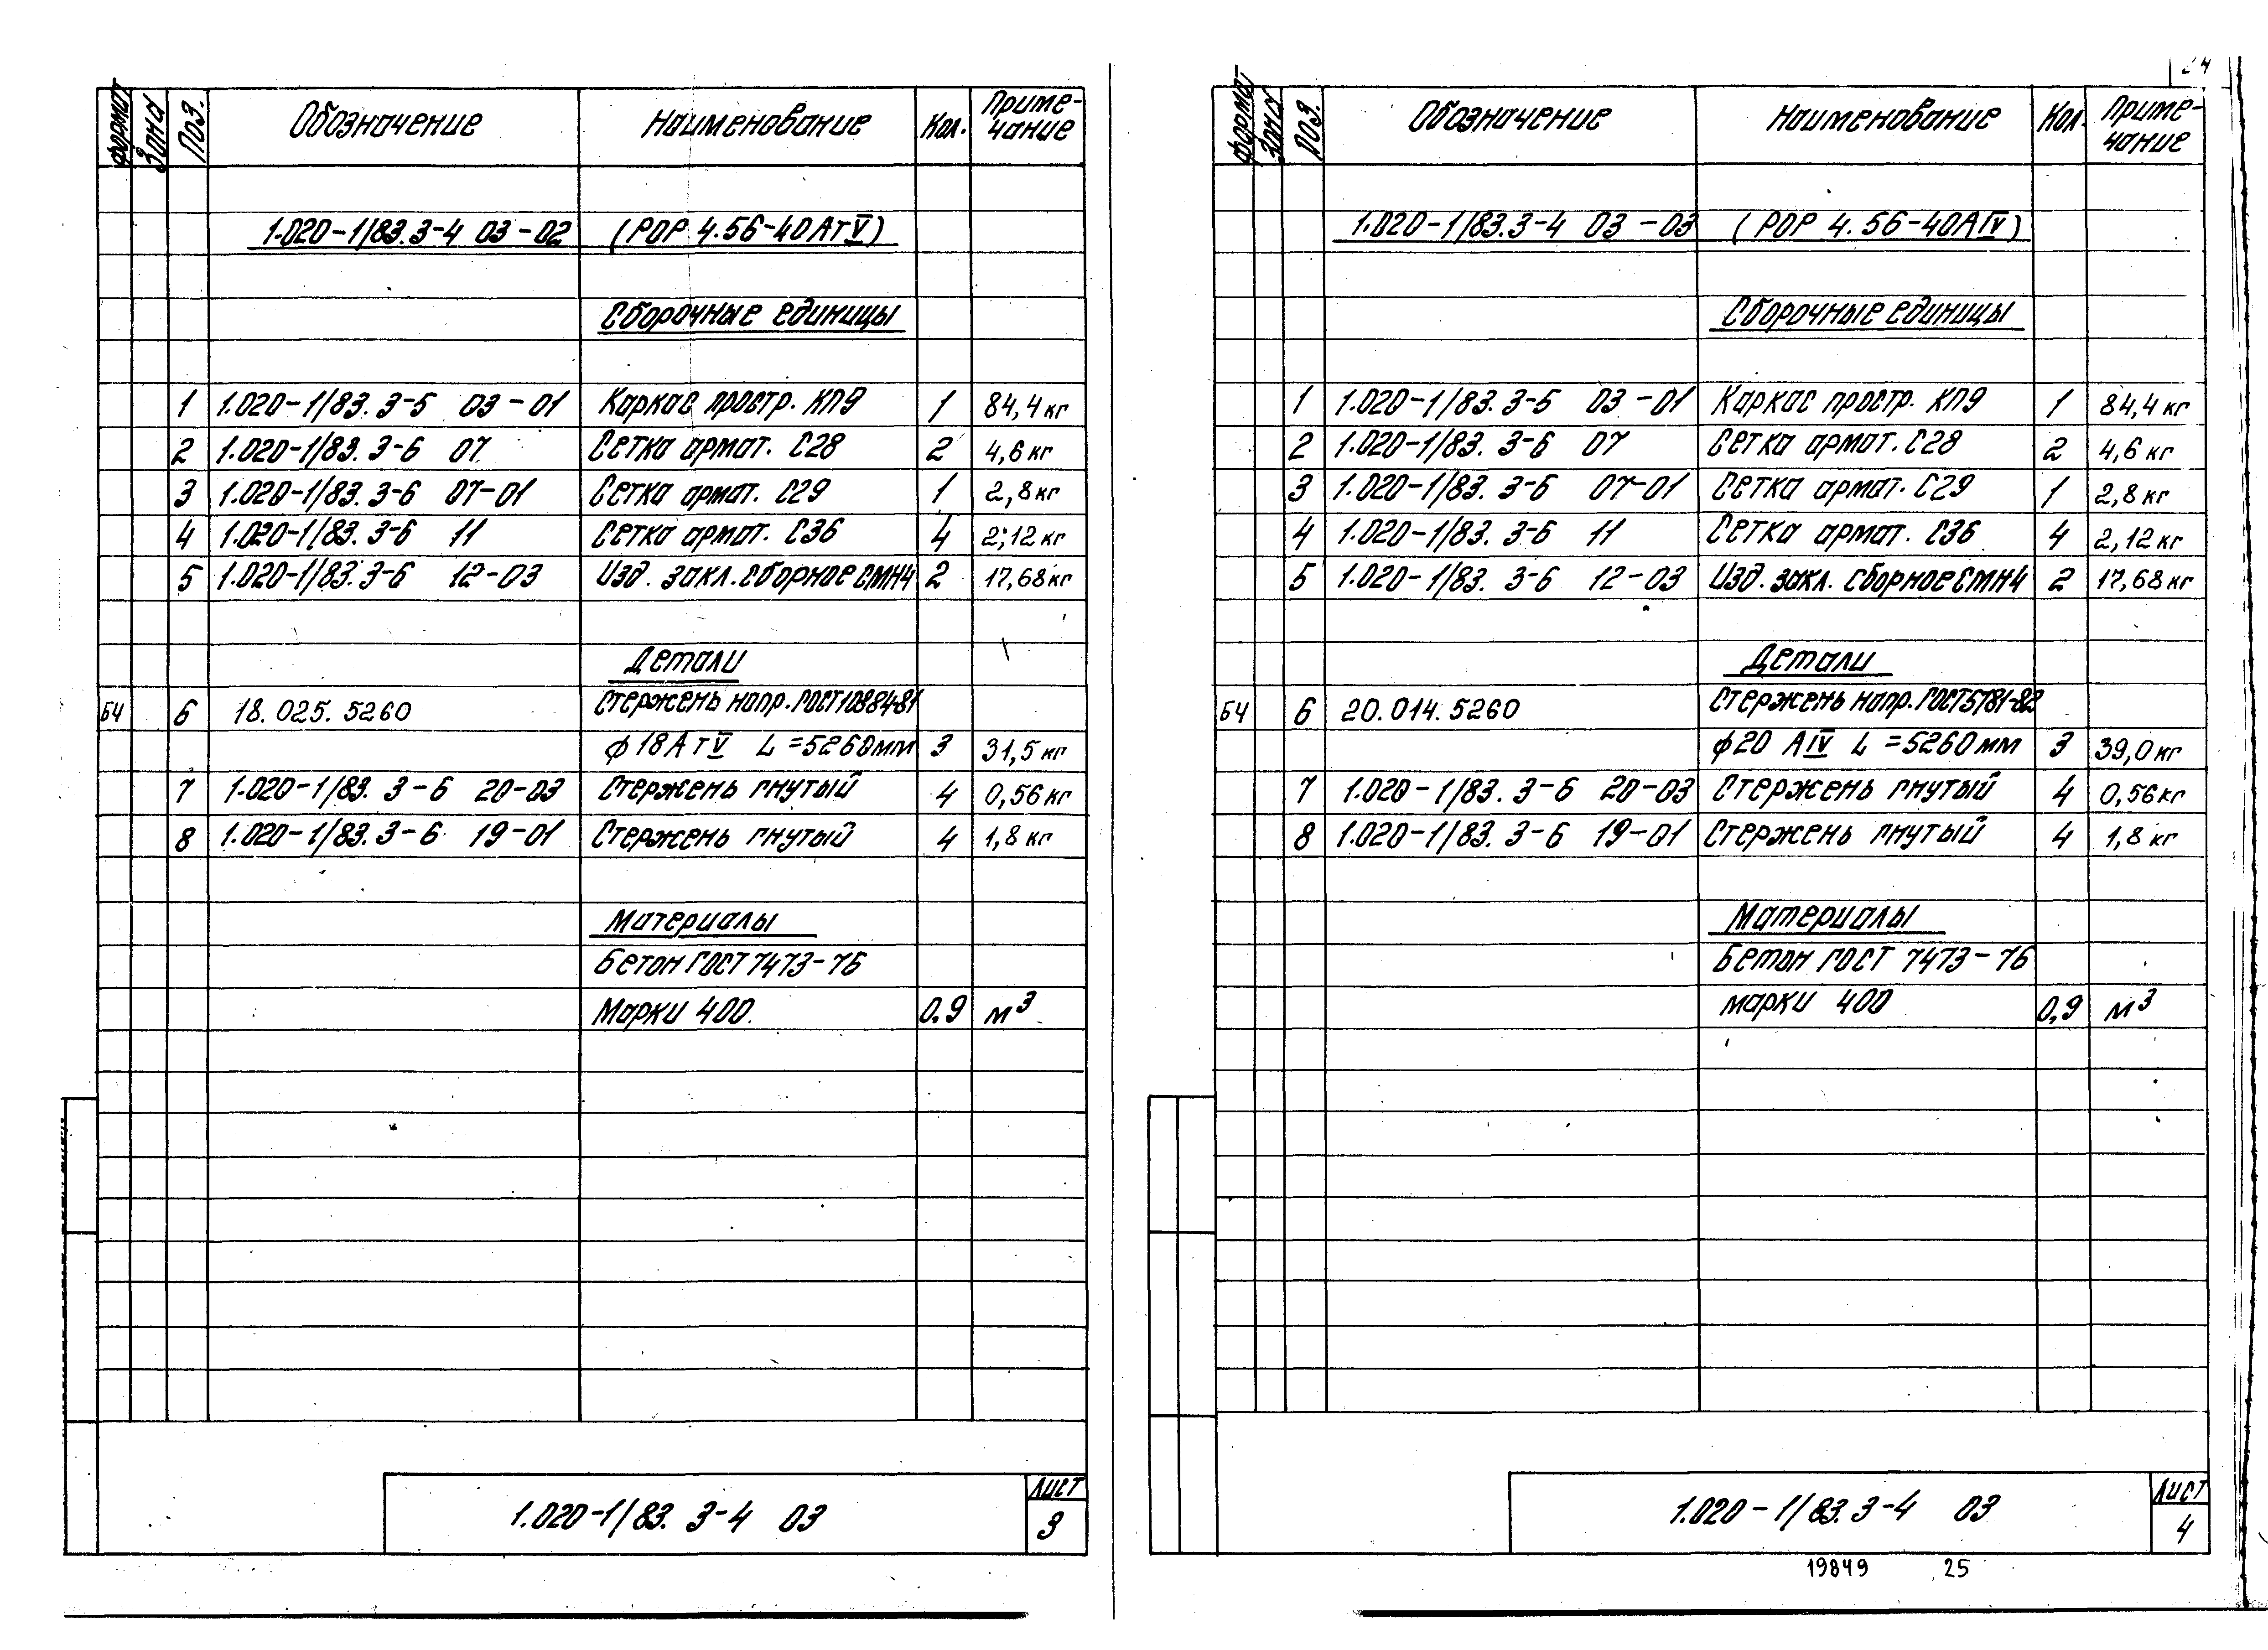 Формат Зона Поз. Обозначение Наименование Кол. Приме-
чание
1.020-1/83.3-4 03-02 (РОР 4.56-40АтV)
Сборочные единицы
1 1.020-1/83.3-5 03-01 Каркас простр. КП9 1 84,4кг
2 1.020-1/83.3-6 07 Сетка армат. С28 2 4,6кг
3 1.020-1/83.3-6 07-01 Сетка армат. С29 1 2,8кг
4 1.020-1/83.3-6 11 Сетка армат. С36 4 2,12кг
5 1.020-1/83.3-6 12-03 Изд. закл. сборное СМН4 2 17,68кг
Детали
БЧ 6 18.025.5260 Стержень напр. ГОСТ10884-81
ф18АтV L=5260мм 3 31,5кг
7 1.020-1/83.3-6 20-03 Стержень гнутый 4 0,56кг
8 1.020-1/83.3-6 19-01 Стержень гнутый 4 1,8кг
Материалы
Бетон ГОСТ 7473-76
Марки 400 0.9 м³
1.020-1/83.3-4 03
Лист
3
Форма- Зона Поз. Обозначение Наименование Кол. Приме-
чание
1.020-1/83.3-4 03-03 (РОР 4.56-40АIV)
Сборочные единицы
1 1.020-1/83.3-5 03-01 Каркас простр. КП9 1 84,4кг
2 1.020-1/83.3-6 07 Сетка армат. С28 2 4,6кг
3 1.020-1/83.3-6 07-01 Сетка армат. С29 1 2,8кг
4 1.020-1/83.3-6 11 Сетка армат. С36 4 2,12кг
5 1.020-1/83.3-6 12-03 Изд. закл. сборное СМН4 2 17,68кг
Детали
БЧ 6 20.014.5260 Стержень напр. ГОСТ5781-82
ф20 АIV L=5260мм 3 39,0кг
7 1.020-1/83.3-6 20-03 Стержень гнутый 4 0,56кг
8 1.020-1/83.3-6 19-01 Стержень гнутый 4 1,8кг
Материалы
Бетон ГОСТ 7473-76
марки 400 0,9 м³
1.020-1/83.3-4 03
Лист
4
19849 25